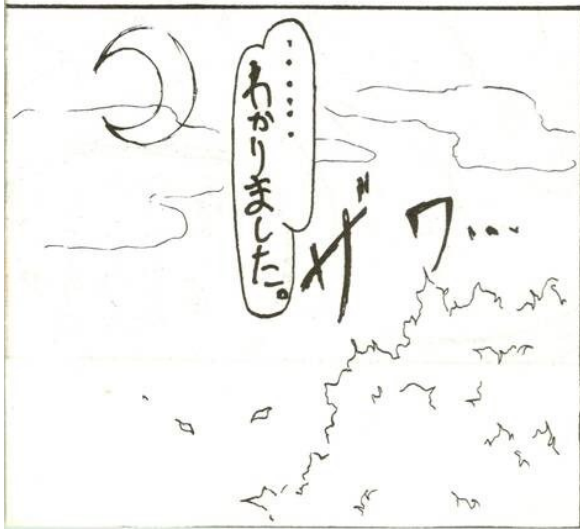 ……
わかりました。
ザワ…